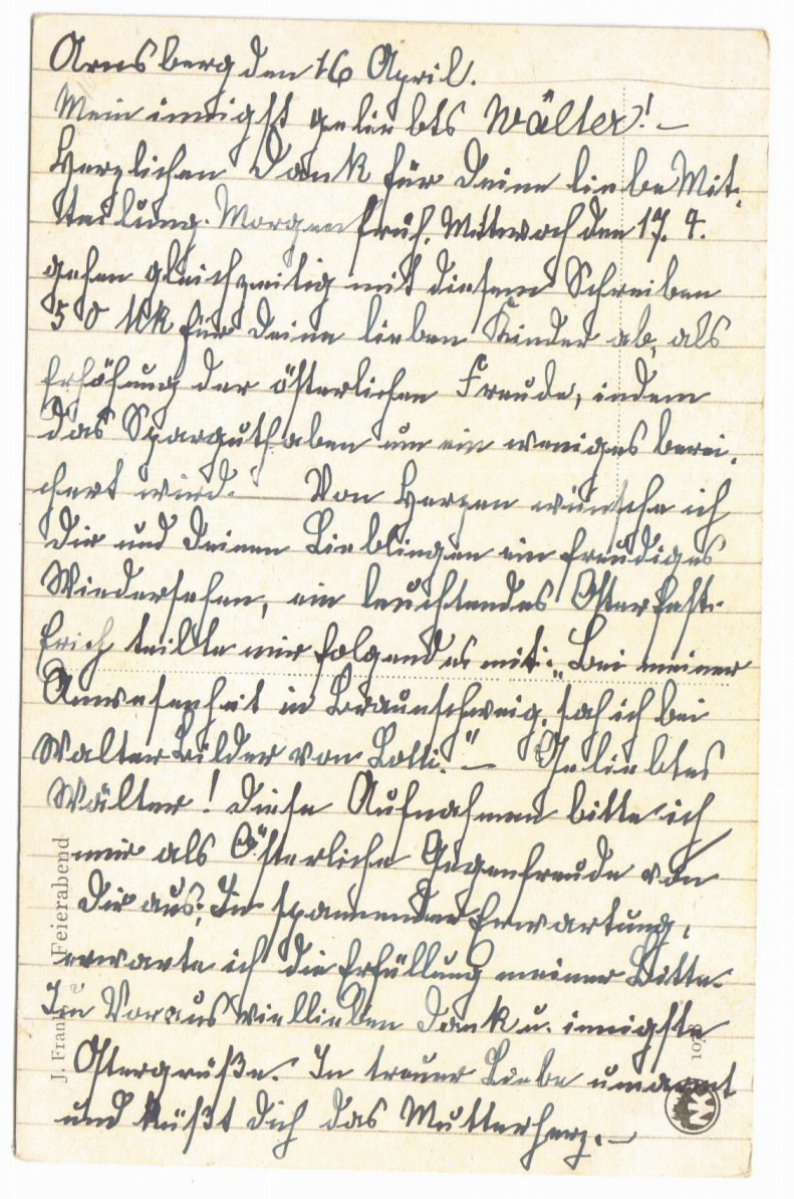 Arnsberg den 16 April.
Mein innigst geliebts Wälter! –
Herzlichen Dank für Deine liebe Mit-
teilung. Morgen früh, Mittwoch den 17. 4.
gehen gleichzeitig mit diesem Schreiben
50 Mk für Deine lieben Kinder ab, als
Erhöhung der österlichen Freude, indem
das Sparguthaben um ein weniges berei-
chert wird. Von Herzen wünsche ich
Dir und Deinen Lieblingen ein freudiges
Wiedersehen, ein leuchtendes Osterfest.
Erich teilte mir folgendes mit: „Bei meiner
Anwesenheit in Braunschweig, sah ich bei
Walter Bilder von Lotti." – Geliebtes
Wälter! Diese Aufnahmen bitte ich
mir als Österliche Gegenfreude von
Dir aus; In spannender Erwartung,
erwarte ich die Erfüllung meiner Bitte.
Im Voraus viellieben Dank u. innigste
Ostergrüße. In treuer Liebe umarmt
und küßt Dich das Mutterherz. –
J. Frank Feierabend